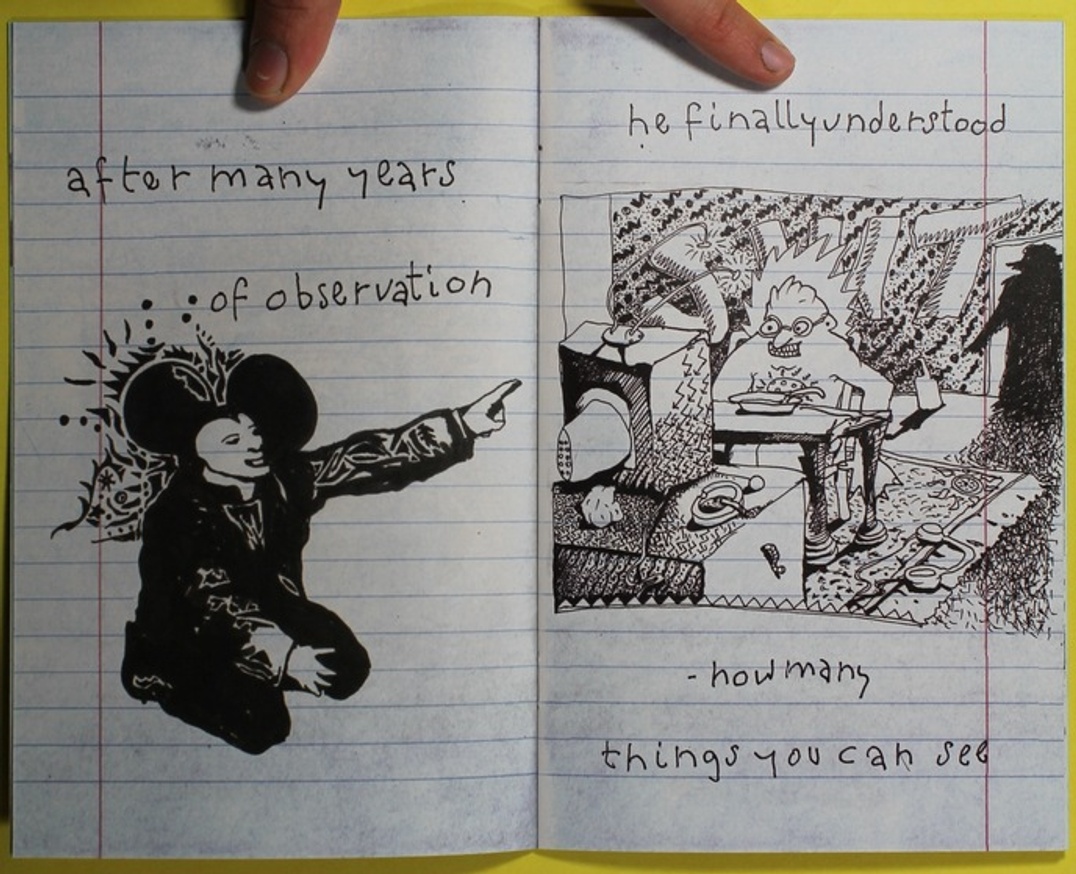 after many years
of observation
he finally understood
- how many
things you can see